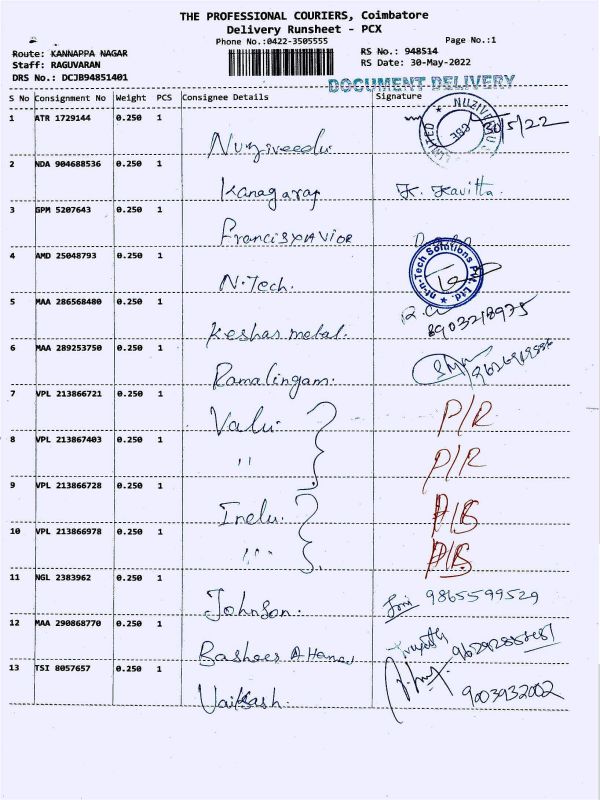 THE PROFESSIONAL COURIERS, Coimbatore
Delivery Runsheet - PCX
Phone No.:0422-3505555 Page No.:1
Route: KANNAPPA NAGAR RS No.: 948514
Staff: RAGUVARAN RS Date: 30-May-2022
DRS No.: DCJB94851401
DOCUMENT DELIVERY
S No Consignment No Weight PCS Consignee Details Signature
1 ATR 1729144 0.250 1 Nuziveedu 30/5/22
2 NDA 904688536 0.250 1 Kanagaraj K. Kavitta
3 GPM 5207643 0.250 1 Francis xavior
4 AMD 25048793 0.250 1 N.Tech.
5 MAA 286568480 0.250 1 Keshar metal. 8903218975
6 MAA 289253750 0.250 1 Ramalingam.
7 VPL 213866721 0.250 1 Valu. P/R
8 VPL 213867403 0.250 1 " P/R
9 VPL 213866728 0.250 1
10 VPL 213866978 0.250 1
11 NGL 2383962 0.250 1 Johnson. 9865599529
12 MAA 290868770 0.250 1
13 TSI 8057657 0.250 1 9003932002